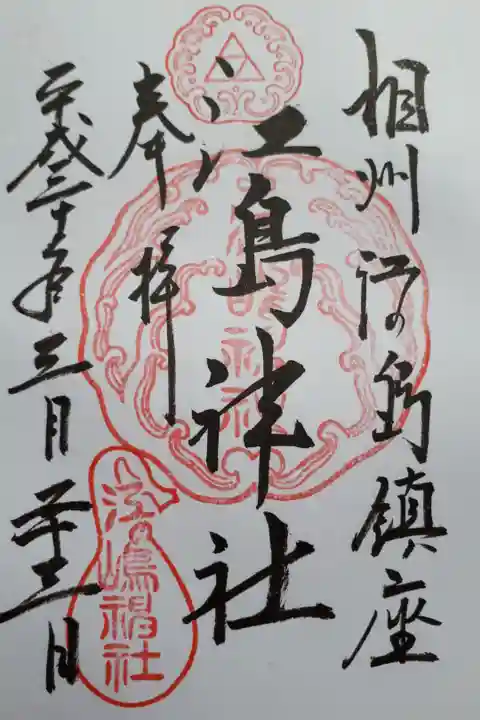 相州江の島鎮座
江島神社
奉拝
平成三十年三月二十三日
江の嶋神社